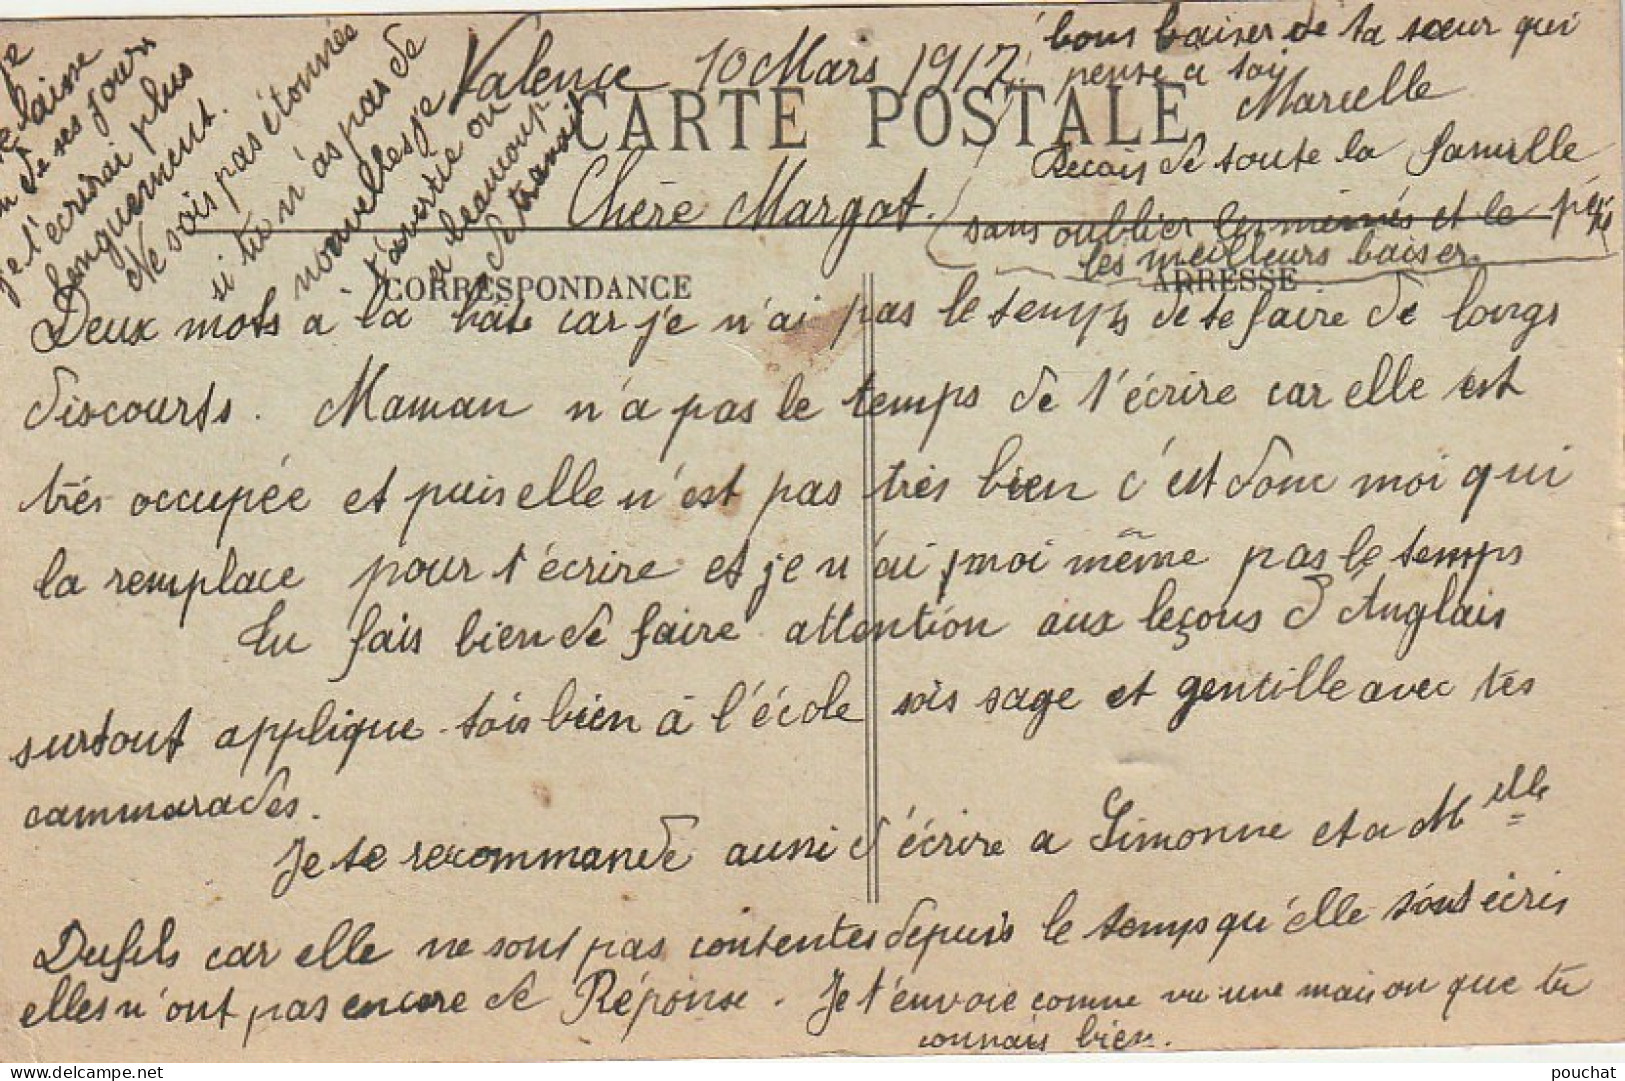 Valence 10 Mars 1917
CARTE POSTALE
Chère Margot.
CORRESPONDANCE
ADRESSE
Deux mots à la hate car je n'ai pas le temps de te faire de longs
discourts. Maman n'a pas le temps de t'écrire car elle est
très occupée et puis elle n'est pas très bien c'est donc moi qui
la remplace pour t'écrire et je n'ai moi même pas le temps
Tu fais bien de faire attention aux leçons d'Anglais
surtout applique-tois bien à l'école sois sage et gentille avec tes
cammarades.
Je te recommande aussi d'écrire a Simonne et a Melle
Dufils car elle ne sont pas contentes depuis le temps qu'elle t'ont écris
elles n'ont pas encore de Réponse. Je t'envoie comme vu une maison que tu
connais bien.
je
laisse
de ses jours
je t'écrirai plus
longuement.
Ne sois pas étonnées
si tu n'as pas de
nouvelles je
t'avertie on
a beaucoup
de travail
bons baiser de ta sœur qui
pense a toi
Marcelle
Recois de toute la famille
sans oublier les mémés et le pépé
les meilleurs baiser.
pouchat